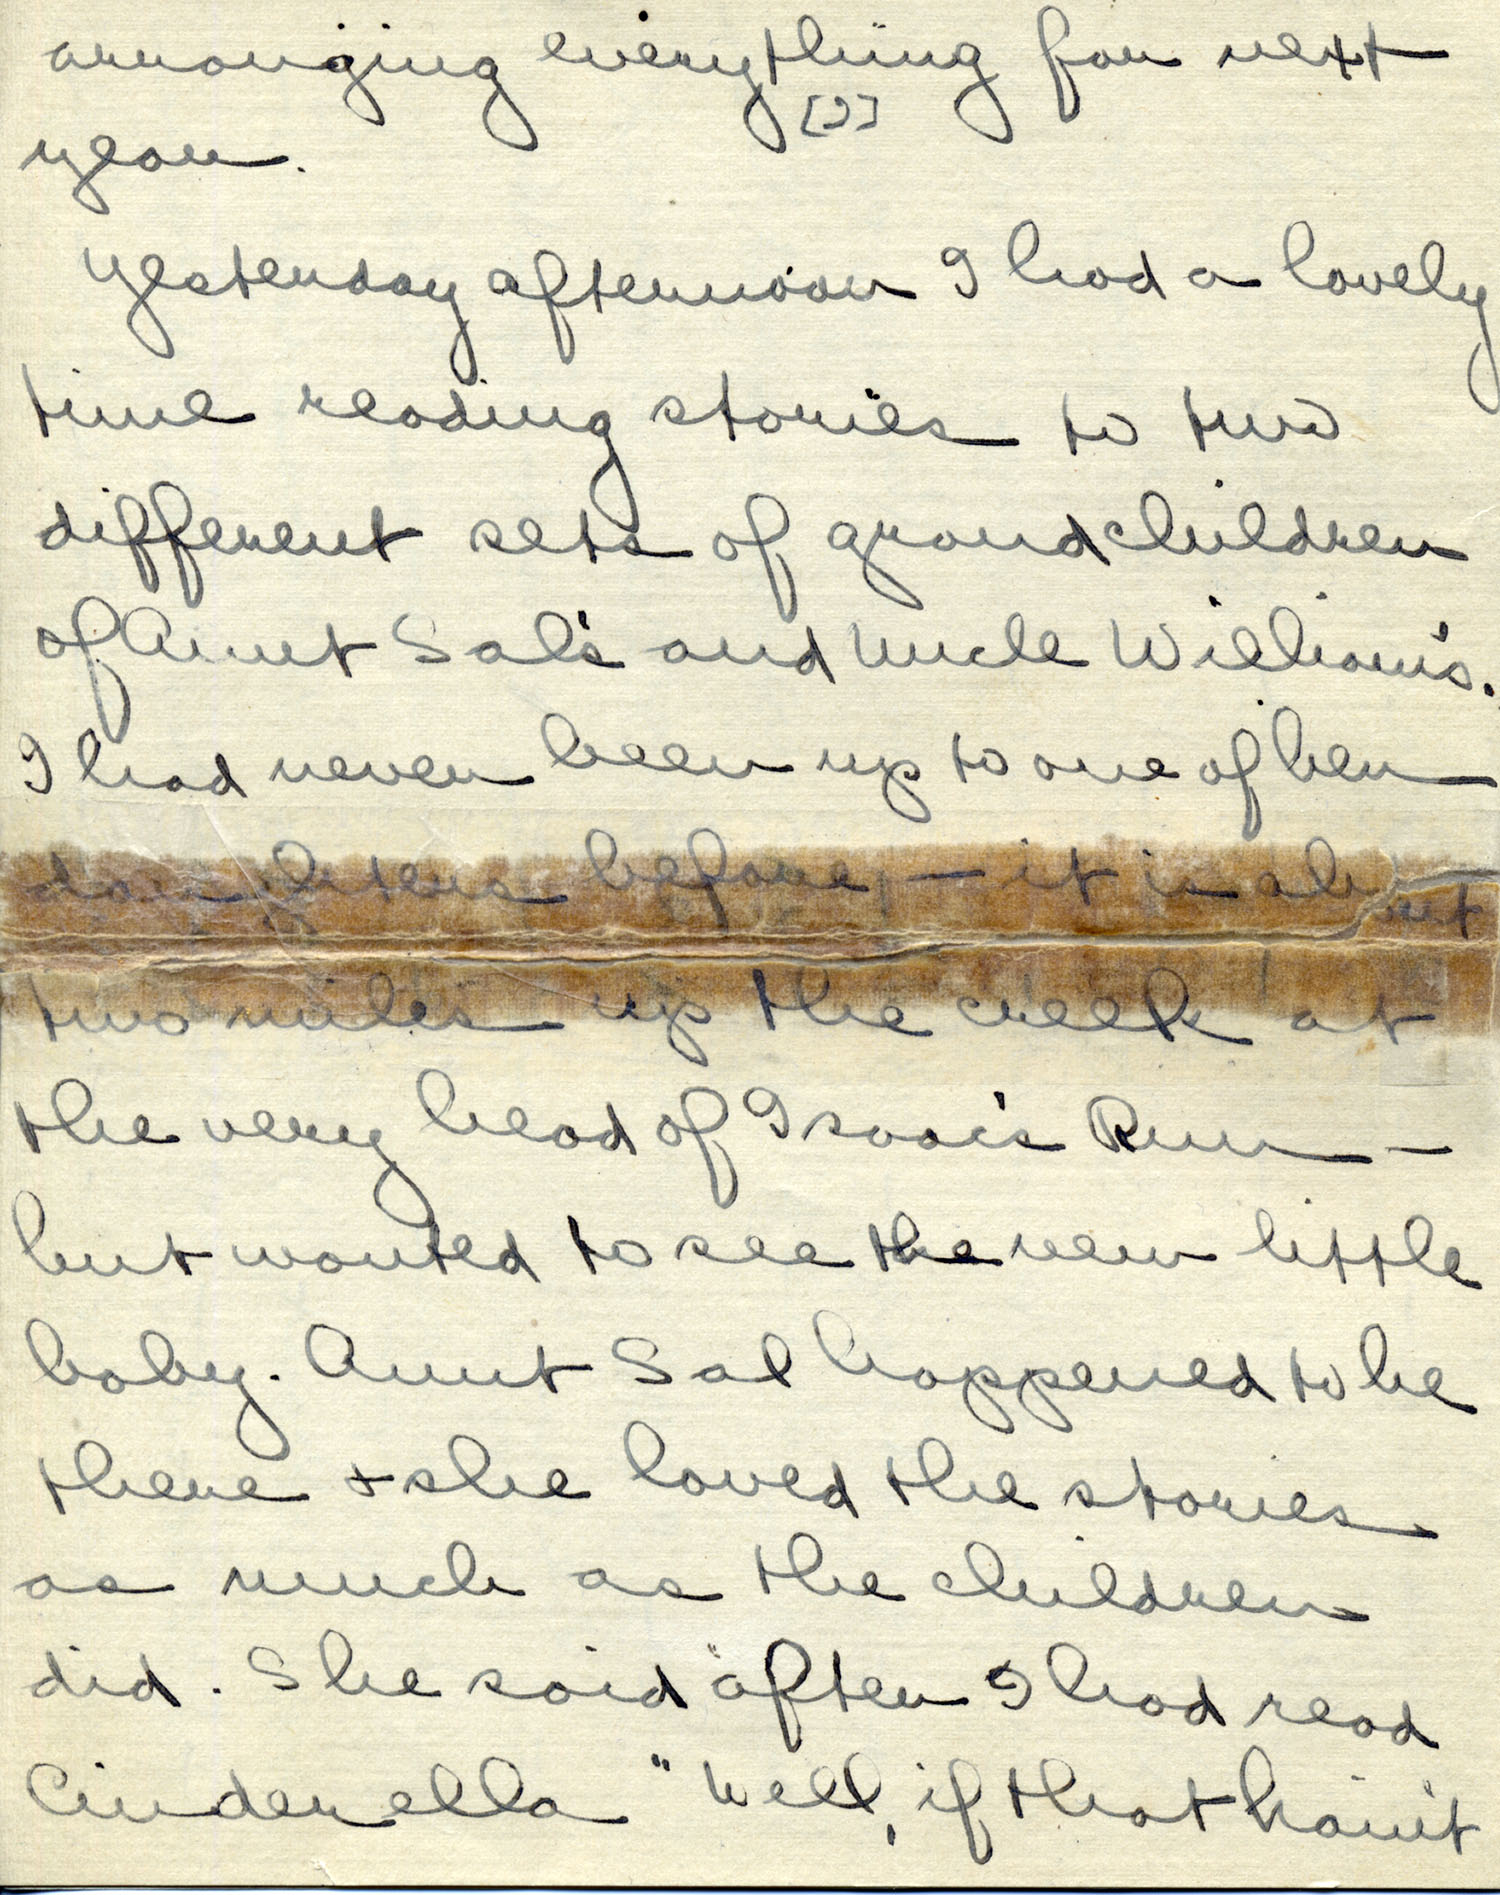 arranging everything for next
[3]
year.
Yesterday afternoon I had a lovely
time reading stories to two
different sets of grandchildren
of Aunt Sal's and Uncle William's.
I had never been up to one of her
daughters before, – it is about
two miles up the creek at
the very head of Isaac's Run –
but wanted to see the new little
baby. Aunt Sal happened to be
there + she loved the stories
as much as the children
did. She said "after I had read
Cinderella "Well, if that hain't